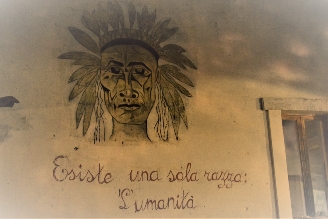 Esiste una sola razza:
L'umanità